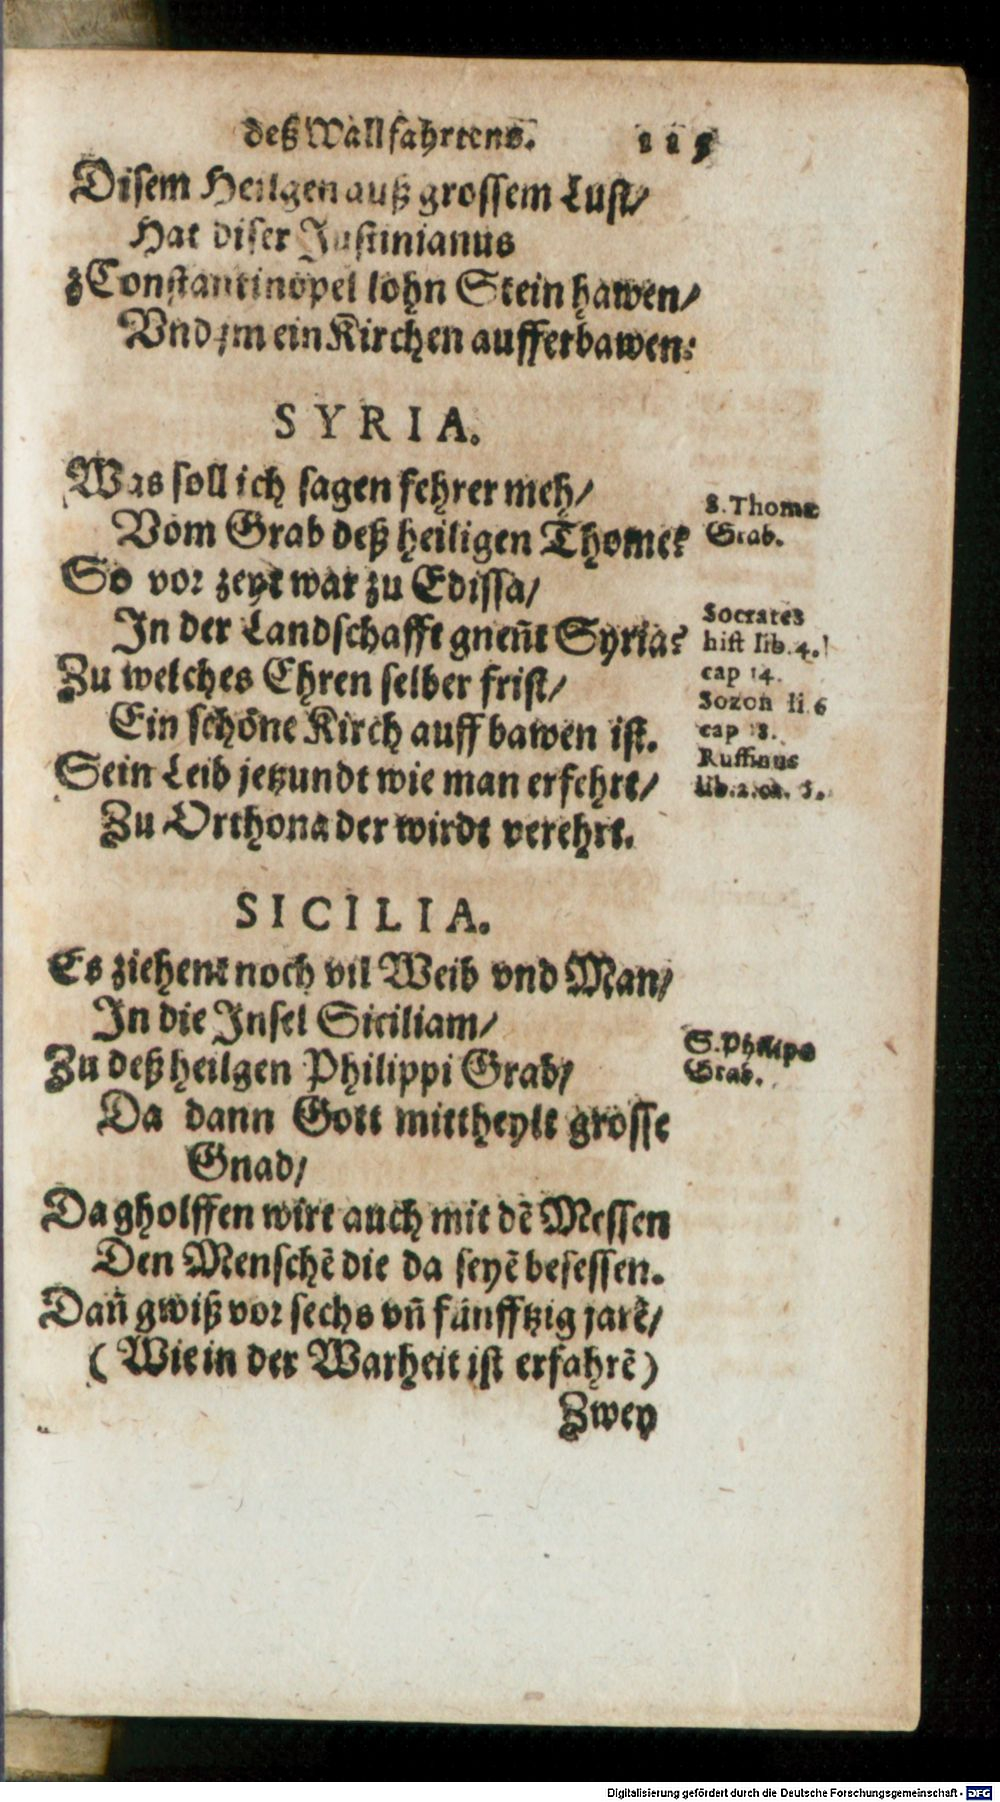 deß Wallfahrtens. 115
Disem Heilgen auß grossem Lust/
Hat diser Justinianus
zConstantinopel lohn Stein hawen/
Vnd jm ein Kirchen aufferbawen:
SYRIA.
Was soll ich sagen fehrer meh/
Vom Grab deß heiligen Thome?
S. Thomæ
Grab.
So vor zeyt war zu Edissa/
In der Landschafft gneñt Syria?
Zu welches Ehren selber frist/
Ein schöne Kirch auff bawen ist.
Sein Leib jetzundt wie man erfehrt/
Zu Orthona der wirdt verehrt.
Socrates
hist lib. 4.
cap 14.
Sozon li. 6
cap 18.
Ruffinus
lib. 2. ca. 5.
SICILIA.
Es ziehent noch vil Weib vnd Man/
In die Insel Siciliam/
Zu deß heilgen Philippi Grab/
S. Philips
Grab.
Da dann Gott mittheylt grosse
Gnad/
Da gholffen wirt auch mit dē Messen
Den Menschē die da seyē besessen.
Dañ gwiß vor sechs vñ fünfftzig jarē/
(Wie in der Warheit ist erfahrē)
Zwey
Digitalisierung gefördert durch die Deutsche Forschungsgemeinschaft - DFG